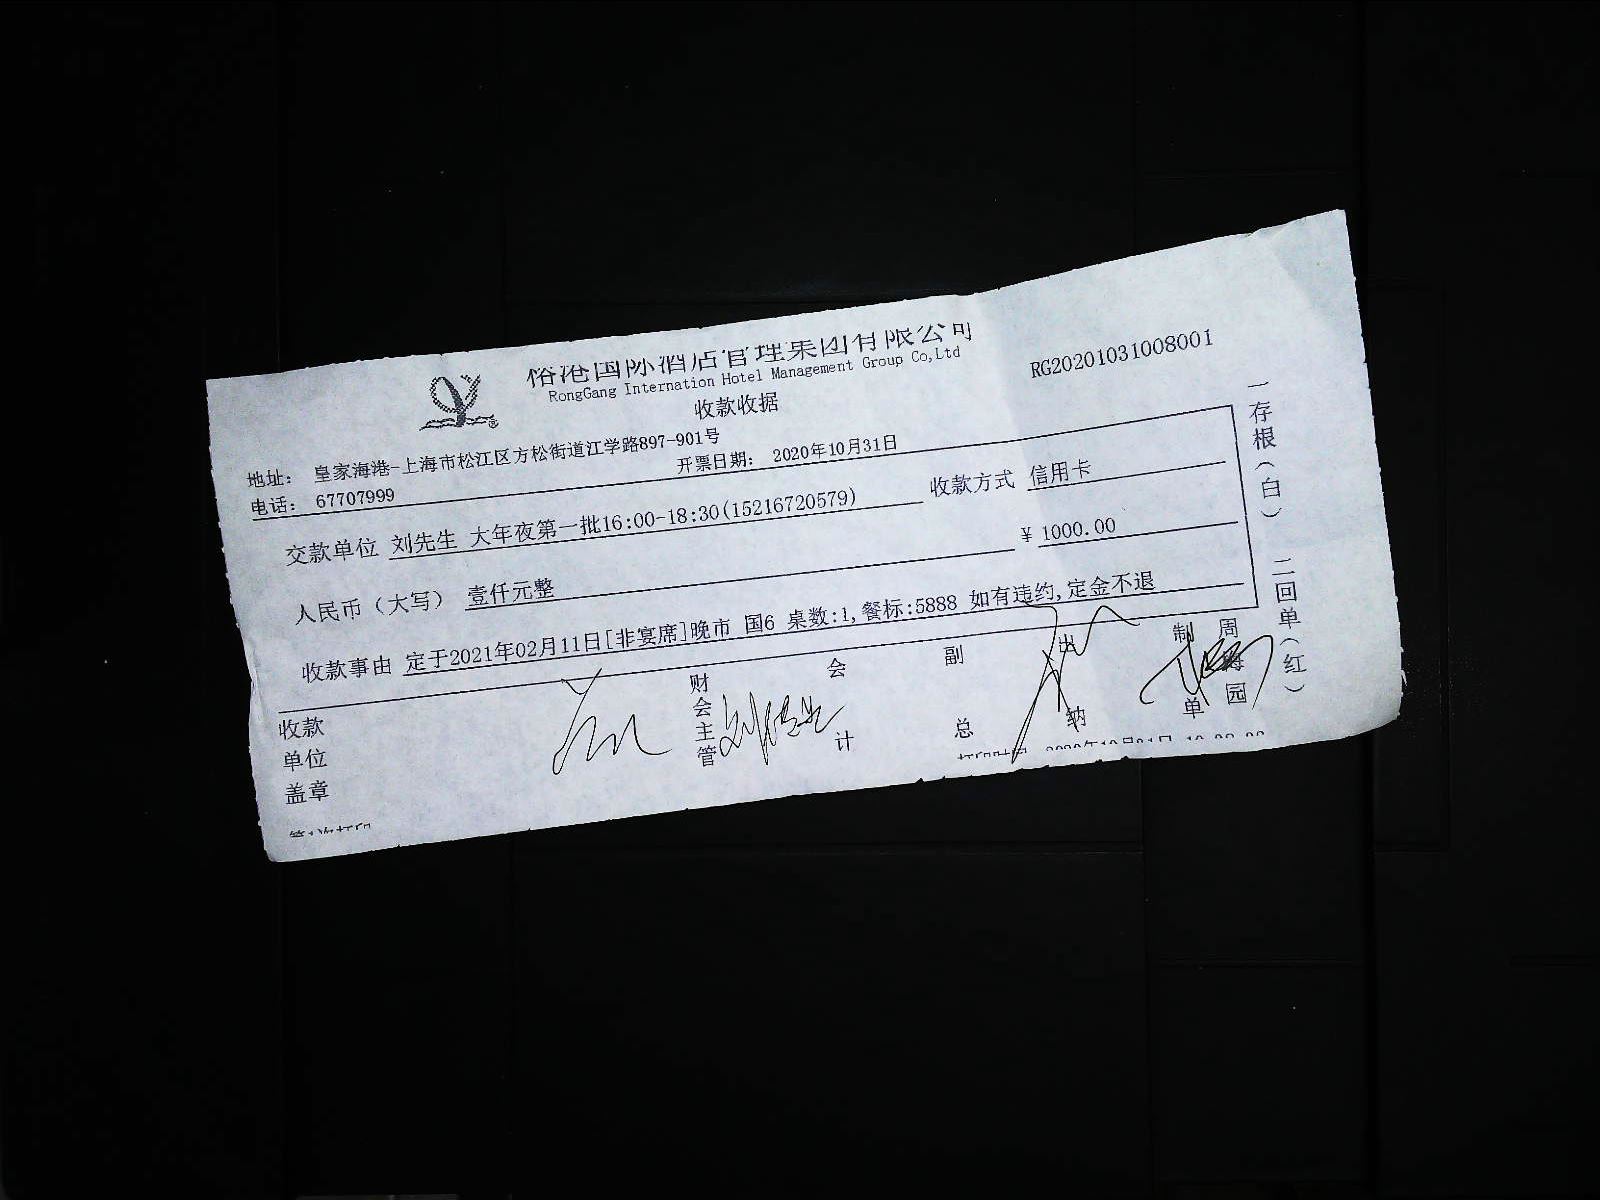 俗港国际酒店管理集团有限公司
RongGang Internation Hotel Management Group Co,Ltd
收款收据
RG20201031008001
地址： 皇家海港-上海市松江区方松街道江学路897-901号
电话： 67707999
开票日期： 2020年10月31日
交款单位 刘先生 大年夜第一批16:00-18:30(15216720579)
收款方式 信用卡
人民币（大写） 壹仟元整
¥ 1000.00
收款事由 定于2021年02月11日[非宴席]晚市 国6 桌数:1,餐标:5888 如有违约,定金不退
收款单位盖章
财会主管
会计
副总
出纳
制单
周 园
一存根（白） 二回单（红）
第1次打印
打印时间